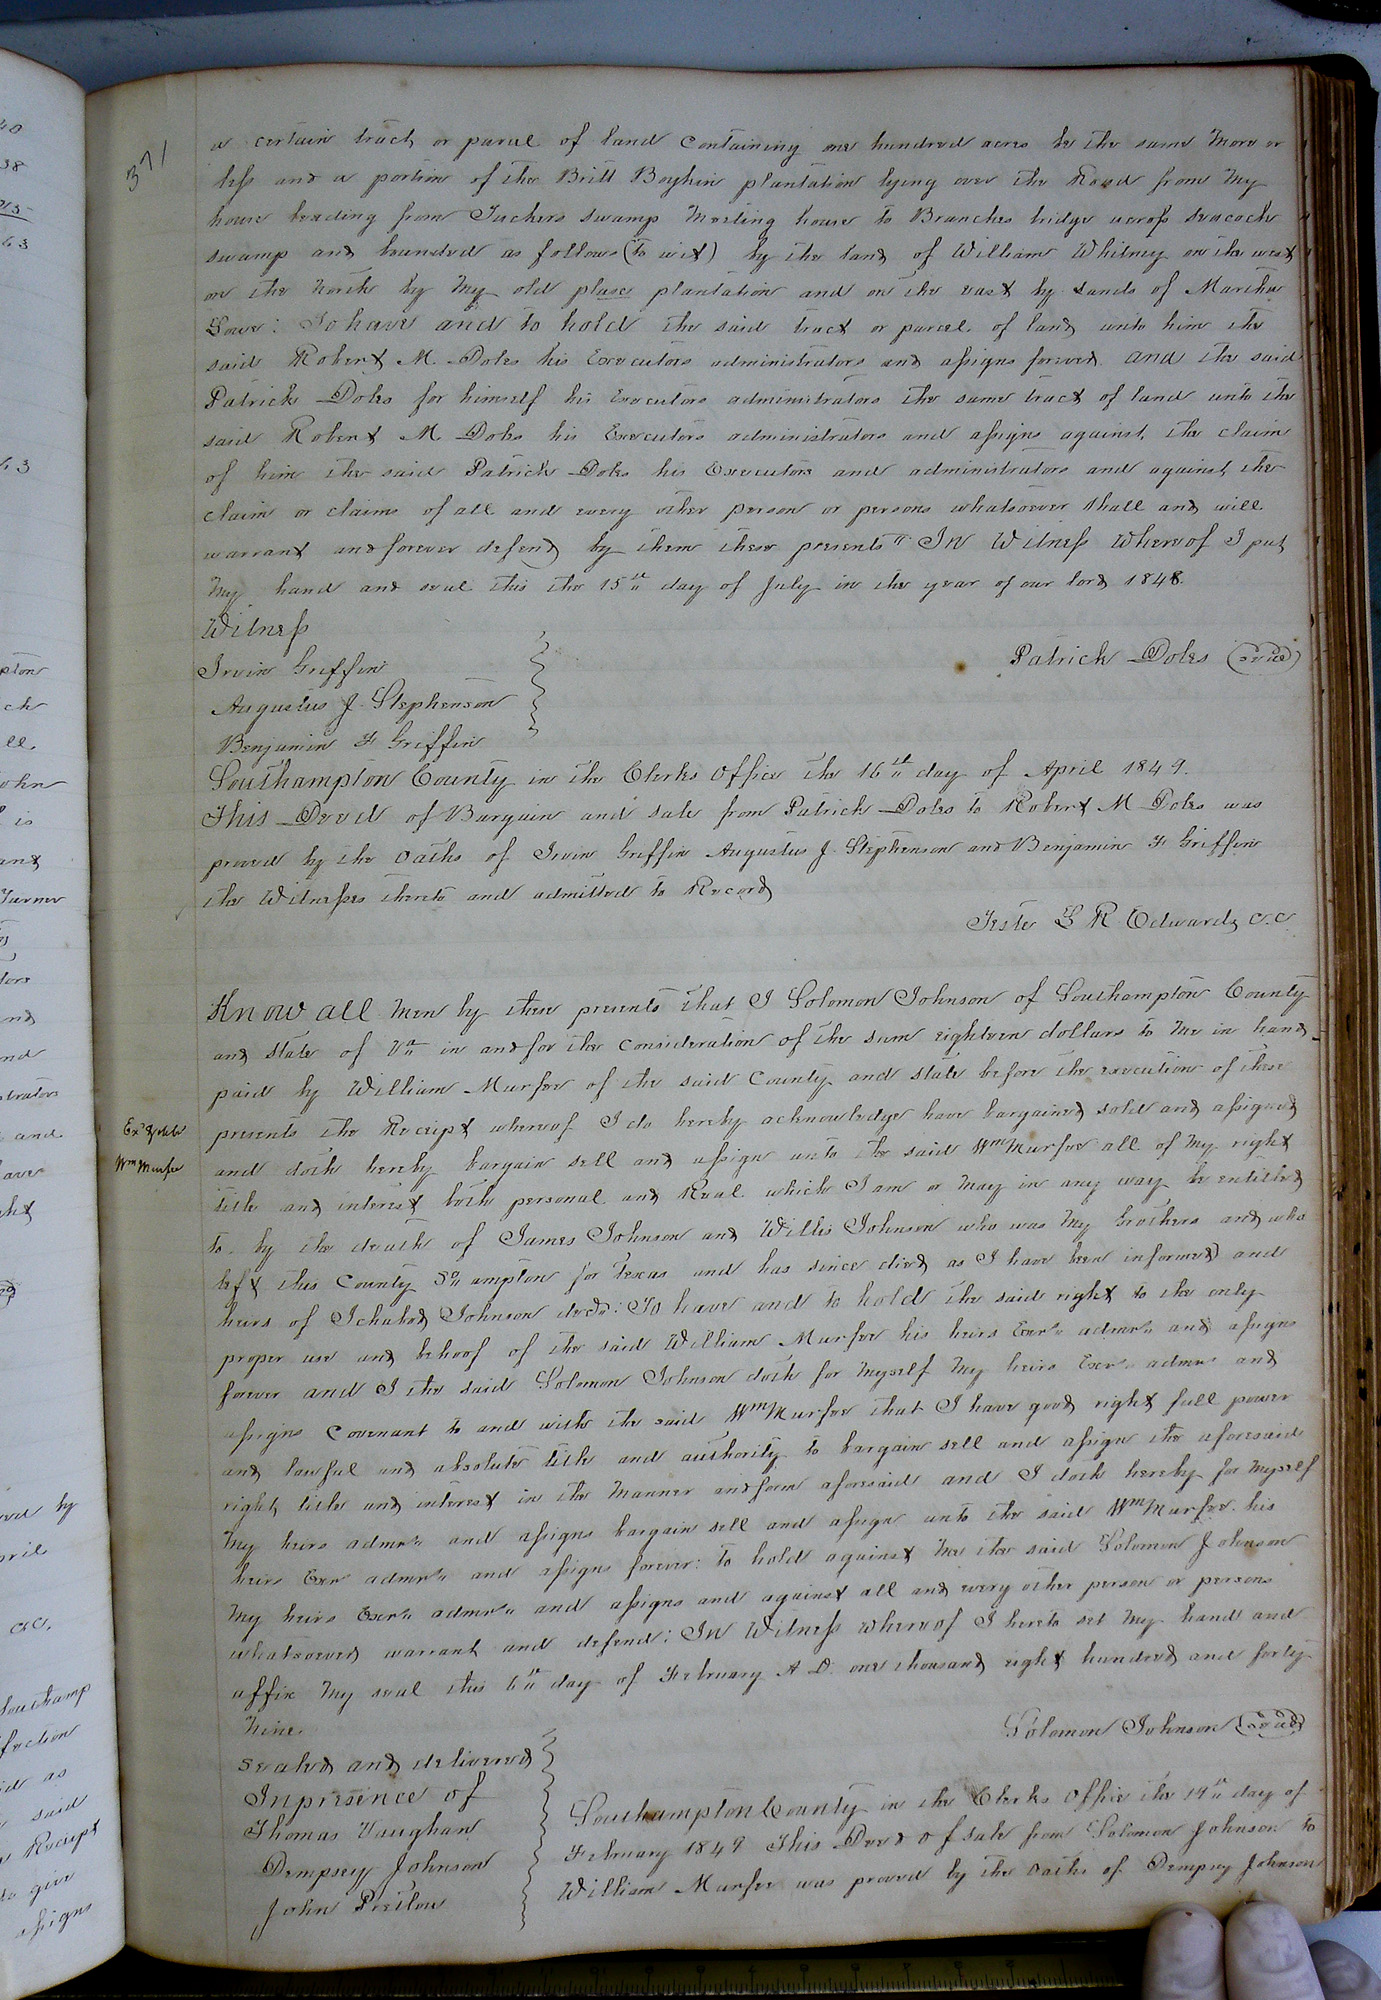 371
a certain tract or parcel of land containing one hundred acres be the same more or
less and a portion of the Britt Boykin plantation lying over the Road from my
house leading from Tuckers swamp Meeting house to Branches bridge across seacock
swamp and bounded as follows (to wit) by the land of William Whitney on the west
on the North by my old place plantation and on the east by Lands of Martha
Lowe: To have and to hold the said tract or parcel of land unto him the
said Robert M. Doles his Executors administrators and assigns forever and the said
Patrick Doles for himself his Executors administrators the same tract of land unto the
said Robert M Doles his Executors administrators and assigns against the claim
of him the said Patrick Doles his Executors and administrators and against the
claim or claims of all and every other person or persons whatsoever shall and will
warrant and forever defend by them these presents" In Witness whereof I put
my hand and seal this the 15th day of July in the year of our lord 1848.
Witness
Irvin Griffin
Patrick Doles (seal)
Augustus J. Stephenson
Benjamin F Griffin
Southampton County in the Clerks Office the 16th day of April 1849.
This Deed of Bargain and sale from Patrick Doles to Robert M Doles was
proved by the oaths of Irvin Griffin Augustus J. Stephenson and Benjamin F Griffin
the Witnesses thereto and admitted to Record
Teste L R Edwards c.c
Know all men by these presents that I Solomon Johnson of Southampton County
and state of Va in and for the consideration of the sum eighteen dollars to me in hand
paid by William Murfee of the said County and state before the execution of these
presents the Receipt whereof I do hereby acknowledge have bargained sold and assigned
and doth hereby bargain sell and assign unto the said Wm Murfee all of my right
title and interest both personal and Real which I am or may in any way be entitled
to by the death of James Johnson and Willis Johnson who was my brothers and who
left this County So ampton for Texas and has since died as I have been informed and
heirs of Ichabod Johnson decd: To have and to hold the said right to the only
proper use and behoof of the said William Murfee his heirs Exrs admrs and assigns
forever and I the said Solomon Johnson doth for myself my heirs Exrs admrs and
assigns covenant to and with the said Wm Murfee that I have good right full power
and lawful and absolute title and authority to bargain sell and assign the aforesaid
right title and interest in the manner and form aforesaid and I doth hereby for myself
my heirs admrs and assigns bargain sell and assign unto the said Wm Murfee his
heirs Exrs admrs and assigns forever: to hold against me the said Solomon Johnson
my heirs Exrs admrs and assigns and against all and every other person or persons
whatsoever warrant and defend: In Witness whereof I hereto set my hand and
affix my seal this 6th day of February A D. one thousand eight hundred and forty
Nine.
Solomon Johnson (seal)
Sealed and delivered
In presence of
Thomas Vaughan
Dempsey Johnson
John Pretlow
Southampton County in the Clerks Office the 19th day of
February 1849 This Deed of sale from Solomon Johnson to
William Murfee was proved by the oaths of Dempsey Johnson
Wm Murfee